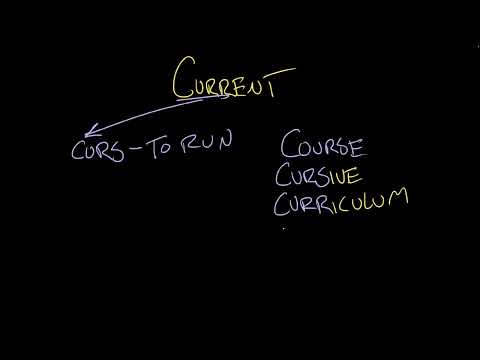 CURRENT
CURS - TO RUN
COURSE
CURSIVE
CURRICULUM